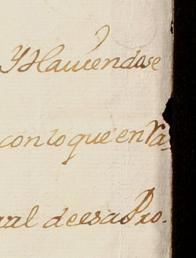 Y Haviendose
con lo que en Va-
ral de esa Pro-